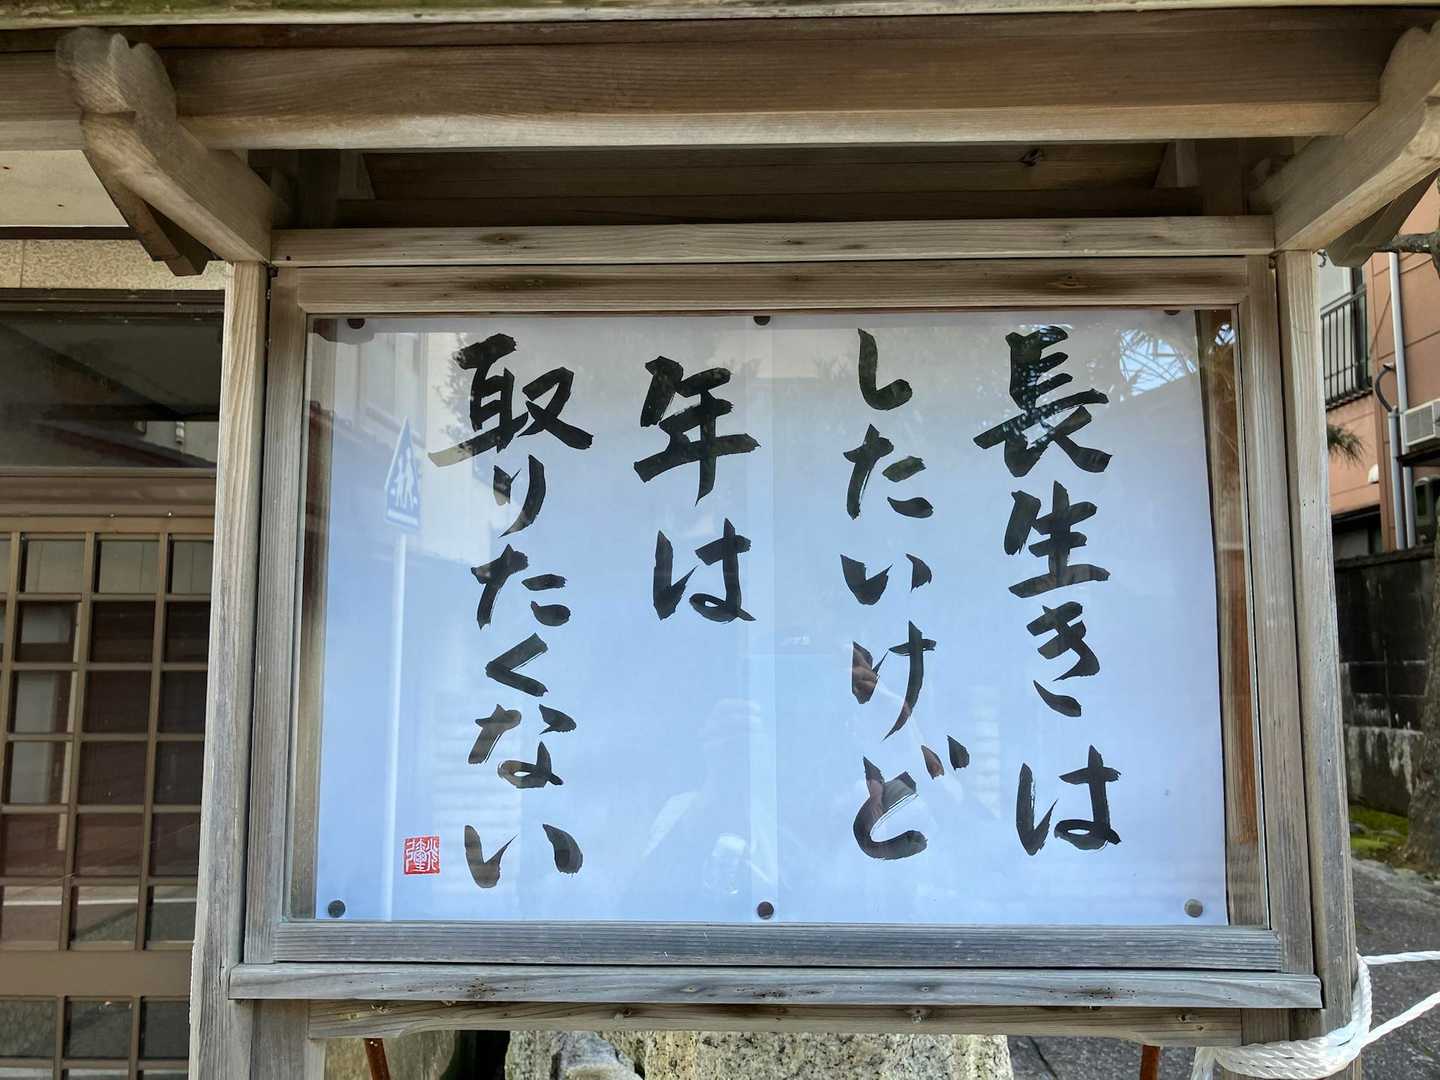 長生きは
したいけど
年は
取りたくない